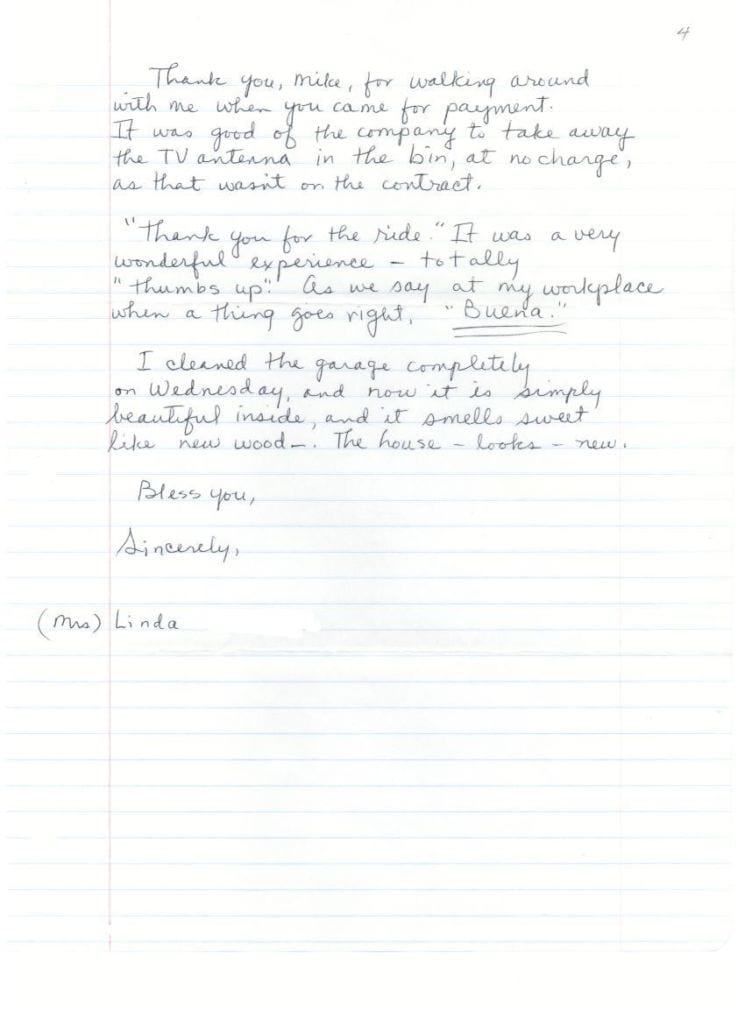 4
Thank you, Mike, for walking around
with me when you came for payment.
It was good of the company to take away
the TV antenna in the bin, at no charge,
as that wasn't on the contract.
"Thank you for the ride." It was a very
wonderful experience – totally
"thumbs up." As we say at my workplace
when a thing goes right, "Buena."
I cleaned the garage completely
on Wednesday, and now it is simply
beautiful inside, and it smells sweet
like new wood–. The house – looks – new.
Bless you,
Sincerely,
(Mrs) Linda